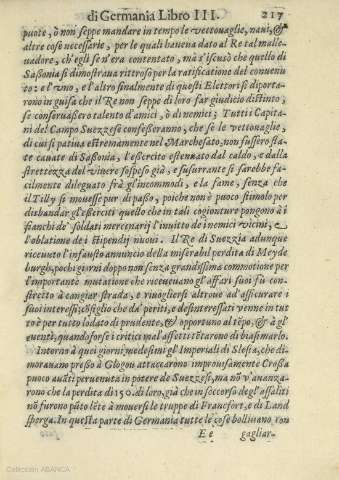 di Germania Libro III. 217
puote, ò non seppe mandare in tempo le vettouaglie, naui, &
altre cose necessarie, per le quali haueua dato al Re tal malle-
uadore, ch'egli se n'era contentato, mà s'iscusò che quello di
Sassonia si dimostraua ritroso per la ratificatione del conuenu
to: e l'vno, e l'altro finalmente di questi Elettori si diporta-
rono in guisa che il Re non seppe di loro far giudicio distinto,
se conseruassero talento d'amici, ò di nemici; Tutti i Capita-
ni del Campo Suezzese confesseranno, che se le vettouaglie,
di cui si patiua estremamente nel Marchesato, non fussero sta-
te cauate di Sassonia, l'essercito estenuato dal caldo, e dalla
strettezza del viuere sospeso già, e susurrante si sarebbe fa-
cilmente dileguato frà gl'incommodi, e la fame, senza che
il Tilly si mouesse pur di passo, poiche non è puoco stimolo per
disbandar gl'esserciti quello che in tali cogionture pongono à i
fianchi de' soldati mercenarij l'inuito de inemici vicini, e
l'oblatione de i stipendij nuoui. Il Re di Suezzia adunque
riceuuto l'infausto annuncio della miserabil perdita di Meyde
burgh, pochi giorni doppo non senza grandissima commotione per
l'importante mutatione che riceueuano gl'affari suoi fù con-
stretto à cangiar strada, e riuoglierſi altroue ad assicurare i
suoi interessi; cōsiglio che da' periti, e desinteressati venne in tut
to è per tutto lodato di prudente, & opportuno al tēpo, & à gl'
euenti, quando forse i critici mal affetti tētarono di biasimarlo.
Intorno à quei giorni medesimi gl'Imperiali di Slesia, che di-
morauano presso à Glogou attaccarono improuisamente Crossa
puoco auāti peruenuta in potere de Suezzesi, ma nō v'auanza-
rono che la perdita di 150. di loro, già che in soccorso degl'assaliti
nō furono pūto lēte à mouersi le truppe di Francfort, e di Land
sperga. In questa parte di Germania tutte le cose bolliuano, con
E e gagliar-
Colección ABANCA